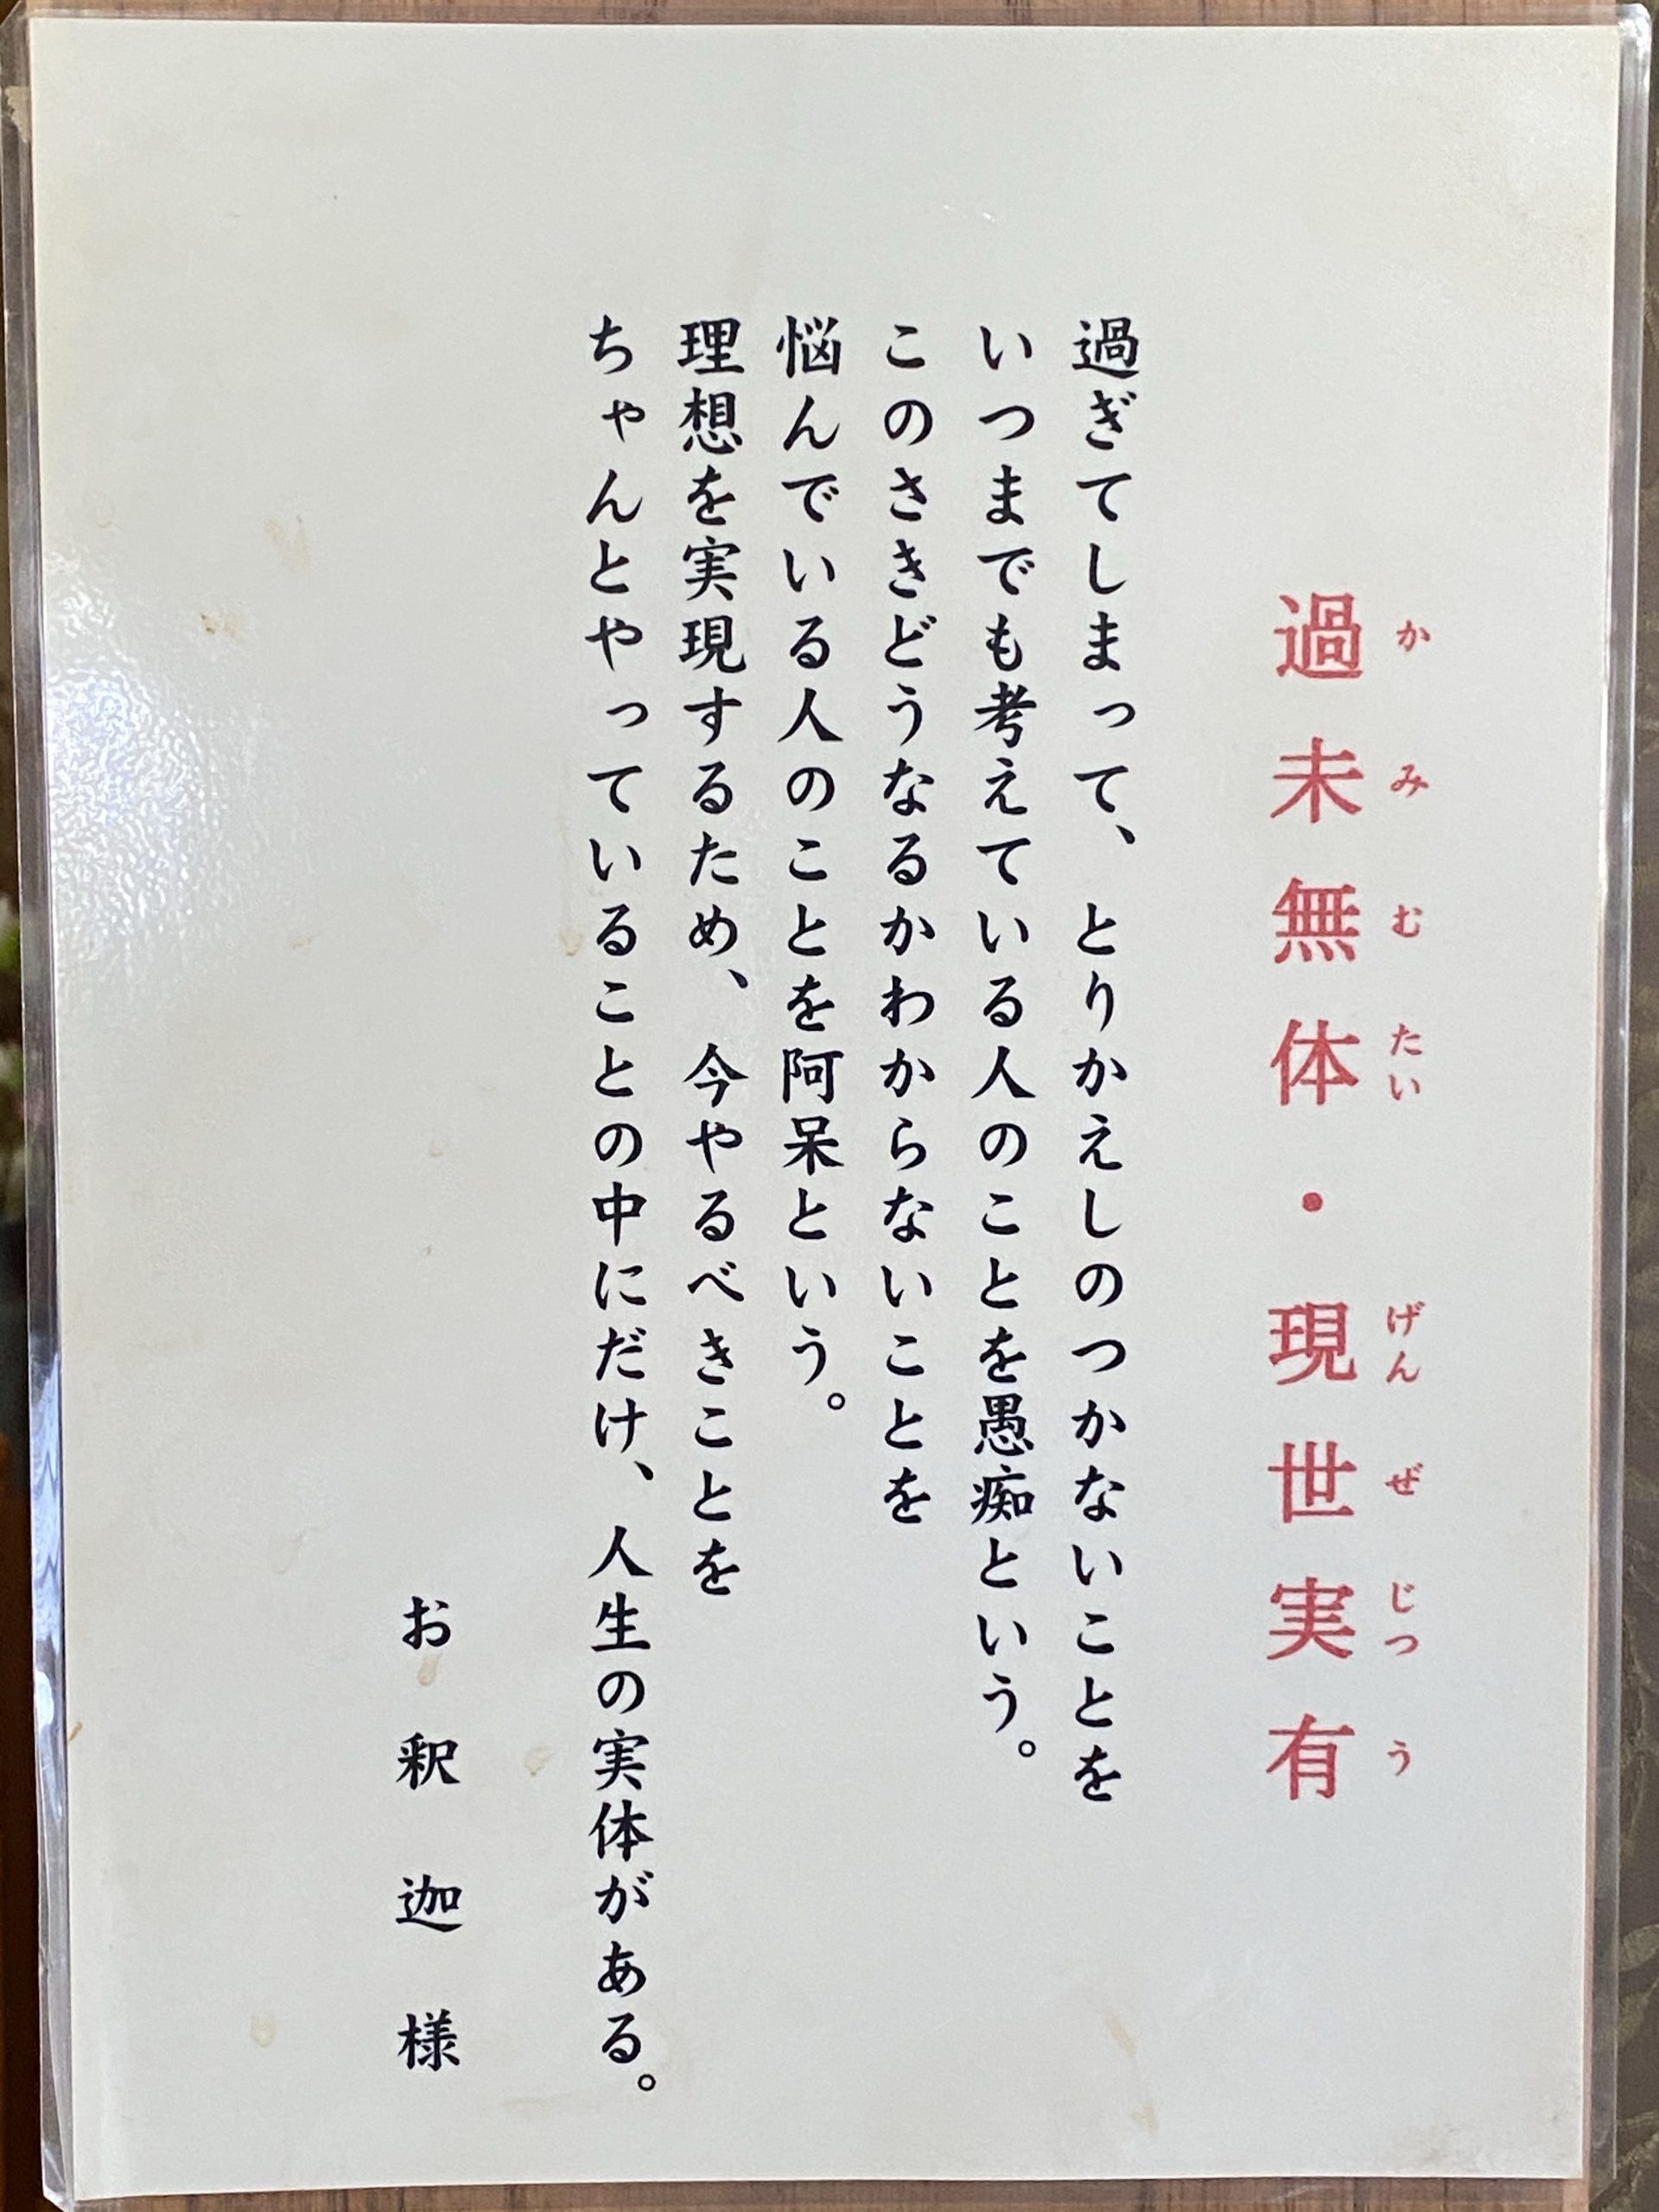 過未無体・現世実有
かみむたい げんぜじつう
過ぎてしまって、とりかえしのつかないことを
いつまでも考えている人のことを愚痴という。
このさきどうなるかわからないことを
悩んでいる人のことを阿呆という。
理想を実現するため、今やるべきことを
ちゃんとやっていることの中にだけ、人生の実体がある。
お釈迦様